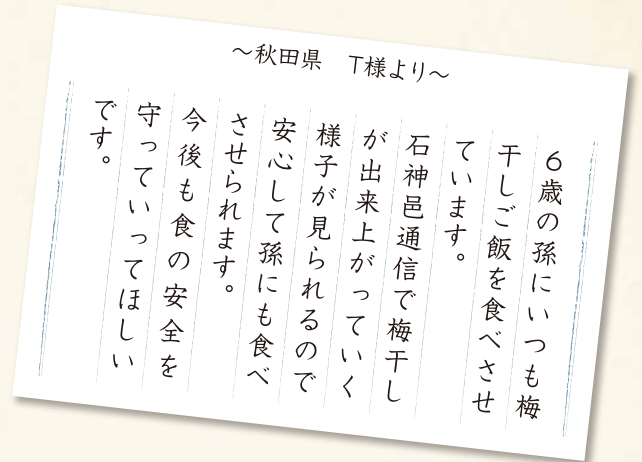 〜秋田県　T様より〜
６歳の孫にいつも梅
干しご飯を食べさせ
ています。
石神邑通信で梅干し
が出来上がっていく
様子が見られるので
安心して孫にも食べ
させられます。
今後も食の安全を
守っていってほしい
です。